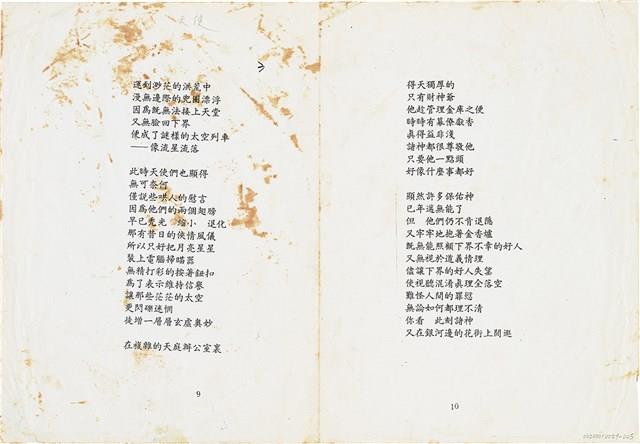 天使
逐到渺茫的洪荒中
漫無邊際的兜圈漂浮
因為既無法接上天堂
又無臉回下界
便成了謎樣的太空列車
——像流星流落
此時天使們也顯得
無可奈何
僅說些哄人的慰言
因為他們的兩個翅膀
早已禿光 縮小 退化
那有昔日的俠情風儀
所以只好把月亮星星
裝上電腦掃瞄器
無精打彩的按著鈕扣
為了表示維持信譽
讓那些茫茫的太空
更閃礫迷惘
徒增一層層玄虛奧妙
在複雜的天庭辦公室裏
9
得天獨厚的
只有財神爺
他趁管理金庫之便
時時有幕僚獻香
真得益非淺
諸神都很尊敬他
只要他一點頭
好像什麼事都好
顯然許多保佑神
已年邁無能了
但 他們仍不肯退隱
又牢牢地抱著金香爐
既無能照顧下界不幸的好人
又無視於道義情理
儘讓下界的好人失望
使視聽混淆真理全落空
難怪人間的罪愆
無論如何都理不清
你看 此刻諸神
又在銀河邊的花街上閒逛
10